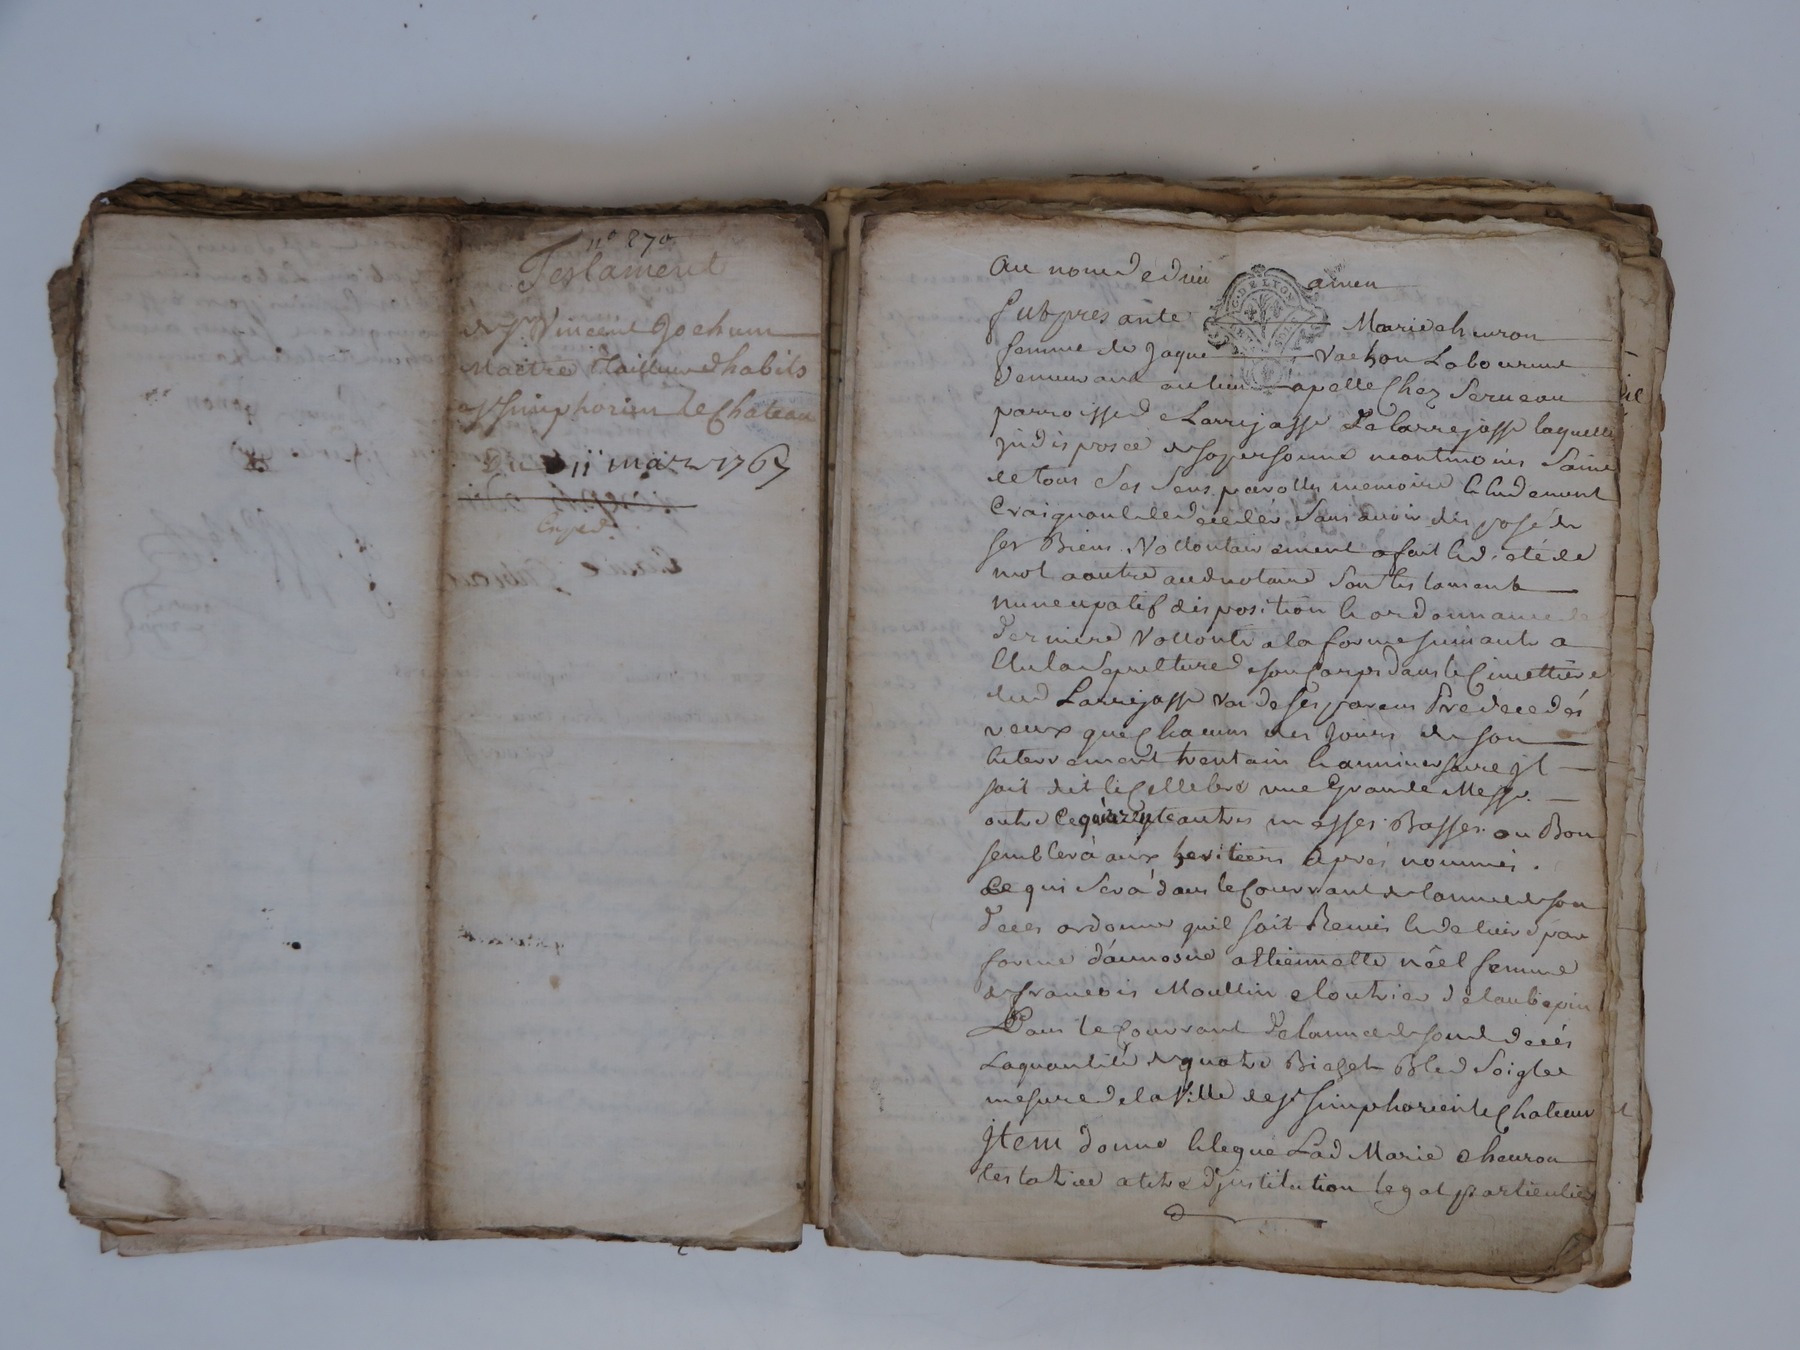 n° 870
Testament
de Sr Vincent Jochum
Maitre Tailleur d'habits
a St Simphorien le Chateau
Du 11 mars 1767
Exped.
au nom de dieu amen
fut presante Marie cheuron
femme de Jaque Vachon Laboureur
demeurant au lieu apellé Chez Serueau
parroisse de Larrejasse de larrejasse laquelle
jndisposée de sa personne neantmoins Saine
de tous Ses Sens parolles memoire & Judement
Craignant de deceder Sans avoir disposé de
ses Biens. Vollontairement a fait & dicté de
mot a autre audnotaire Son testament
nuncupatif disposition & ordonnance de
derniere Vollonté a la forme suiuante a
Elu la Sepulture de son Corps dans le Cimettiere
dud Larrejasse Vas de ses parens Predecedés
veux que Chacun des Jours de son
Enterrement trentain & anniuersaire jl
soit dit & Cellebré une Grande Messe.
outre ce quarente autres messes Basses ou Bon
semblera aux heritiers aprés nommés.
Ce qui Sera dans le Courrant de l'année de son
deces ordonne quil soit Remis & deliuré par
forme d'aumosne a Etiennette nöel femme
de francois Moullin cloutrier de laubepin
Dans le Courrant de lannee de sond decés
La quantité de quatre Bichet Bled Soigle
mesure de la Ville de St Simphorien le Chateau
jtem donne & legue Lad Marie cheuron
testatrice a titre d'jnstitution legat particulier